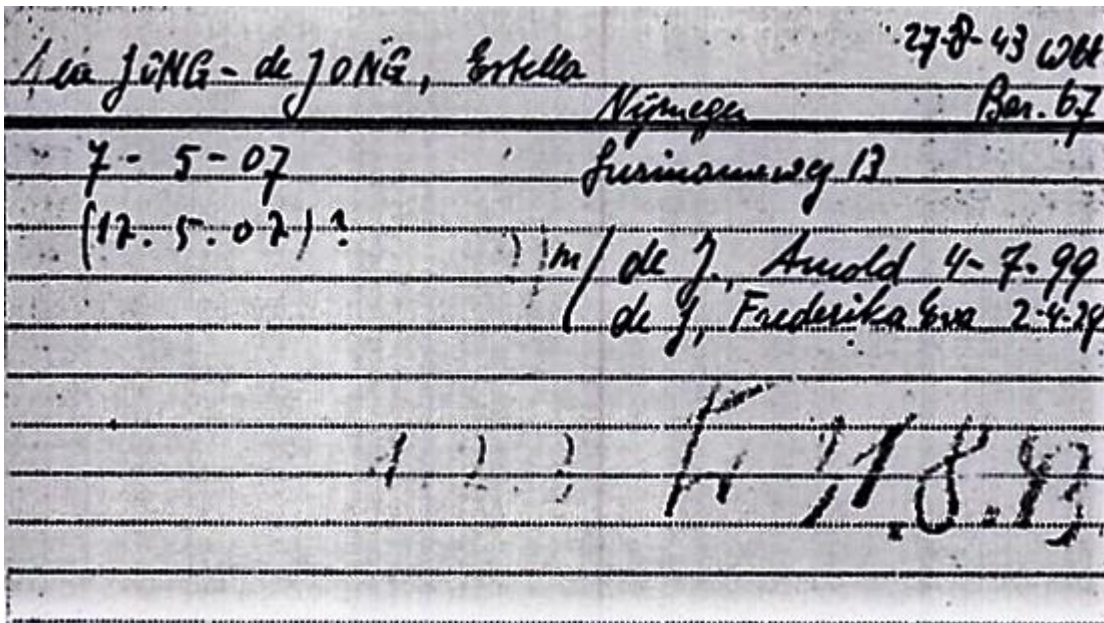 de JONG - de JONG, Estella
27-8-43 Wbk
Nijmegen Bar. 67
7 - 5 - 07
Surinameweg 13
(12. 5. 07)?
m/ de J., Arnold 4-7-99
de J., Frederika Eva 2-4-29
31.8.43